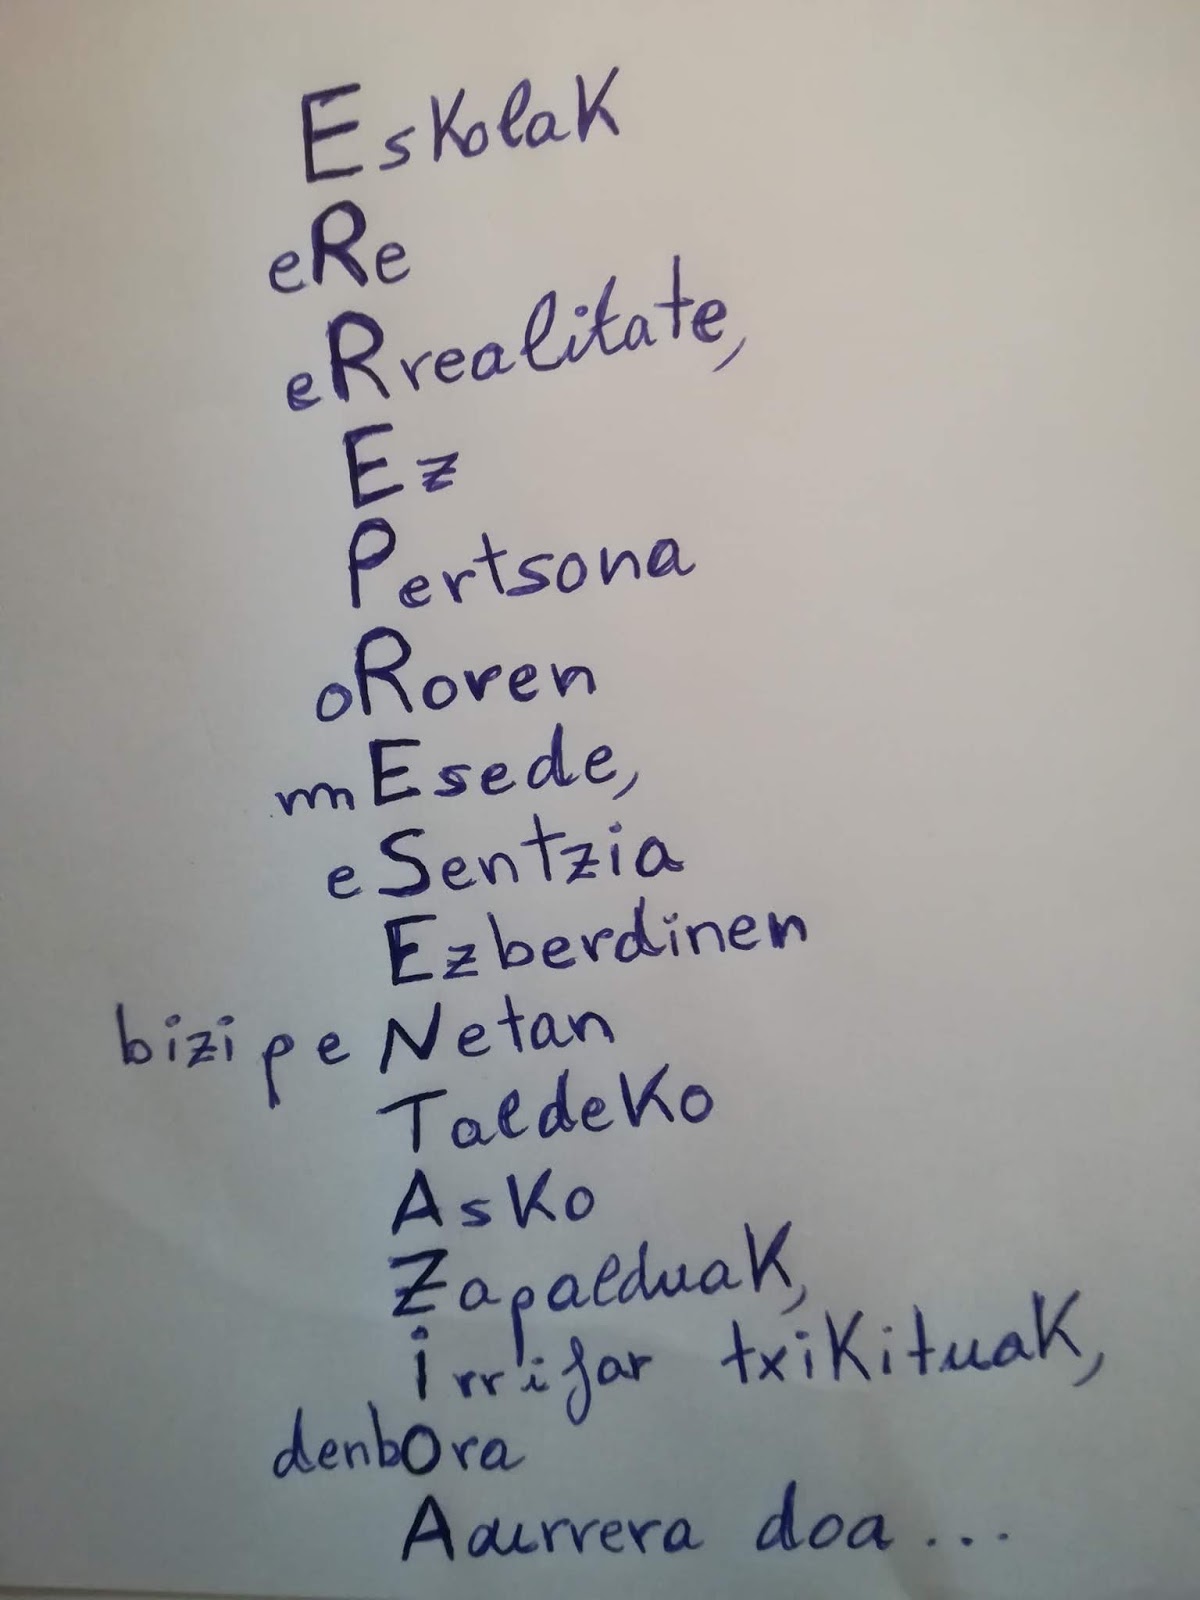 EsKolaK
eRe
eRrealitate,
Ez
Pertsona
oRoren
mEsede,
eSentzia
Ezberdinen
bizipeNetan
TaldeKo
AsKo
ZapalduaK,
irrifar txiKituaK,
denbOra
Aurrera doa...